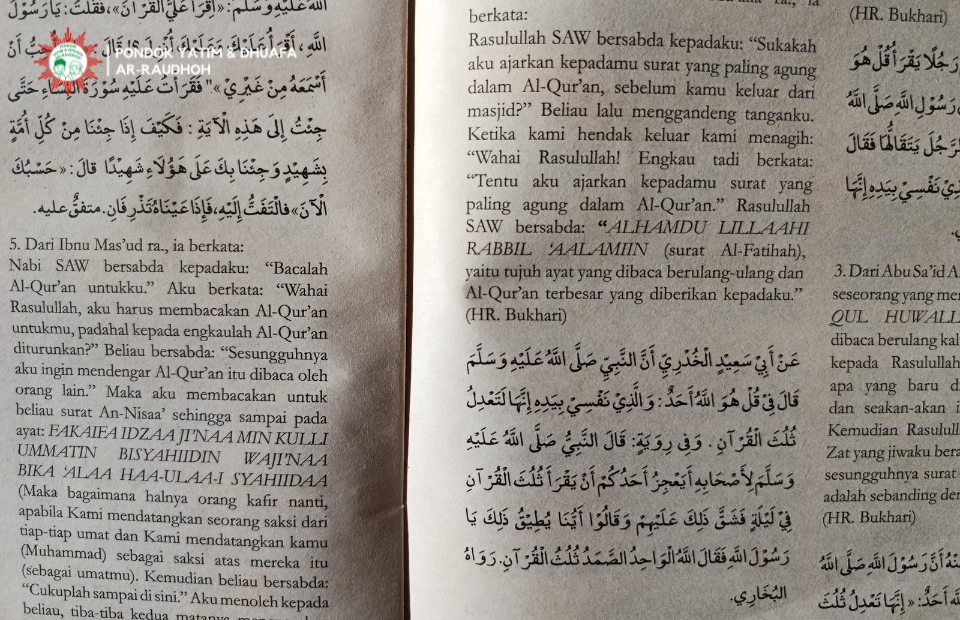 اللهُ عَلَيْهِ وَسَلَّمَ: «اِقْرَأْ عَلَيَّ الْقُرْآنَ»، فَقُلْتُ: يَارَسُوْلَ
اللهِ ، أَقْرَأُ عَلَيْكَ وَعَلَيْكَ أُنْزِلَ؟ قَالَ
أَسْمَعَهُ مِنْ غَيْرِيْ» فَقَرَأْتُ عَلَيْهِ سُوْرَةَ النِّسَاءِ حَتَّى
جِئْتُ إِلَى هَذِهِ الْآيَةِ : فَكَيْفَ إِذَا جِئْنَا مِنْ كُلِّ أُمَّةٍ
بِشَهِيْدٍ وَجِئْنَا بِكَ عَلَى هَؤُلَاءِ شَهِيْدًا قَالَ: «حَسْبُكَ
الْآنَ» فَالْتَفَتُّ إِلَيْهِ، فَإِذَا عَيْنَاهُ تَذْرِفَانِ. متفقٌ عليه.
PONDOK YATIM & DHUAFA
AR-RAUDHOH
5. Dari Ibnu Mas'ud ra., ia berkata:
Nabi SAW bersabda kepadaku: “Bacalah
Al-Qur'an untukku.” Aku berkata: “Wahai
Rasulullah, aku harus membacakan Al-Qur'an
untukmu, padahal kepada engkaulah Al-Qur'an
diturunkan?” Beliau bersabda: “Sesungguhnya
aku ingin mendengar Al-Qur'an itu dibaca oleh
orang lain.” Maka aku membacakan untuk
beliau surat An-Nisaa' sehingga sampai pada
ayat: FAKAIFA IDZAA JI'NAA MIN KULLI
UMMATIN BISYAHIIDIN WAJI'NAA
BIKA 'ALAA HAA-ULAA-I SYAHIIDAA
(Maka bagaimana halnya orang kafir nanti,
apabila Kami mendatangkan seorang saksi dari
tiap-tiap umat dan Kami mendatangkan kamu
(Muhammad) sebagai saksi atas mereka itu
(sebagai umatmu). Kemudian beliau bersabda:
“Cukuplah sampai di sini.” Aku menoleh kepada
beliau, tiba-tiba kedua matanya
berkata:
Rasulullah SAW bersabda kepadaku: “Sukakah
aku ajarkan kepadamu surat yang paling agung
dalam Al-Qur'an, sebelum kamu keluar dari
masjid?” Beliau lalu menggandeng tanganku.
Ketika kami hendak keluar kami menagih:
“Wahai Rasulullah! Engkau tadi berkata:
“Tentu aku ajarkan kepadamu surat yang
paling agung dalam Al-Qur'an.” Rasulullah
SAW bersabda: “ALHAMDU LILLAAHI
RABBIL 'AALAMIIN (surat Al-Fatihah),
yaitu tujuh ayat yang dibaca berulang-ulang dan
Al-Qur'an terbesar yang diberikan kepadaku.”
(HR. Bukhari)
عَنْ أَبِيْ سَعِيْدٍ الْخُذْرِيِّ أَنَّ النَّبِيَّ صَلَّى اللهُ عَلَيْهِ وَسَلَّمَ
قَالَ فِيْ قُلْ هُوَ اللهُ أَحَدٌ : وَالَّذِيْ نَفْسِيْ بِيَدِهِ إِنَّهَا لَتَعْدِلُ
ثُلُثَ الْقُرْآنِ . وَفِى رِوَيَةٍ: قَالَ النَّبِيُّ صَلَّى اللهُ عَلَيْهِ
وَسَلَّمَ لِأَصْحَابِهِ أَيَعْجِزُ أَحَدُكُمْ أَنْ يَقْرَأَ ثُلُثَ الْقُرْآنِ
فِيْ لَيْلَةٍ فَشَقَّ ذَلِكَ عَلَيْهِمْ وَقَالُوْا أَيُّنَا يُطِيْقُ ذَلِكَ يَا
رَسُوْلَ اللهِ فَقَالَ اللهُ الْوَاحِدُ الصَّمَدُ ثُلُثُ الْقُرْآنِ. رَوَاهُ
البُخَارِي.
(HR. Bukhari)
رَجُلًا يَقْرَأُ قُلْ هُوَ
رَسُوْلِ اللهِ صَلَّى اللهُ
الرَّجُلَ يَتَقَالُّهَا فَقَالَ
نَفْسِيْ بِيَدِهِ إِنَّهَا
3. Dari Abu Sa'id A
seseorang yang me
QUL HUWALL
dibaca berulang kal
kepada Rasulullah
apa yang baru d
dan seakan-akan i
Kemudian Rasulull
Zat yang jiwaku bera
sesungguhnya surat
adalah sebanding de
(HR. Bukhari)
أَنَّ رَسُوْلَ اللهِ صَلَّى اللهُ
أَحَدٌ: «إِنَّهَا تَعْدِلُ ثُلُثَ